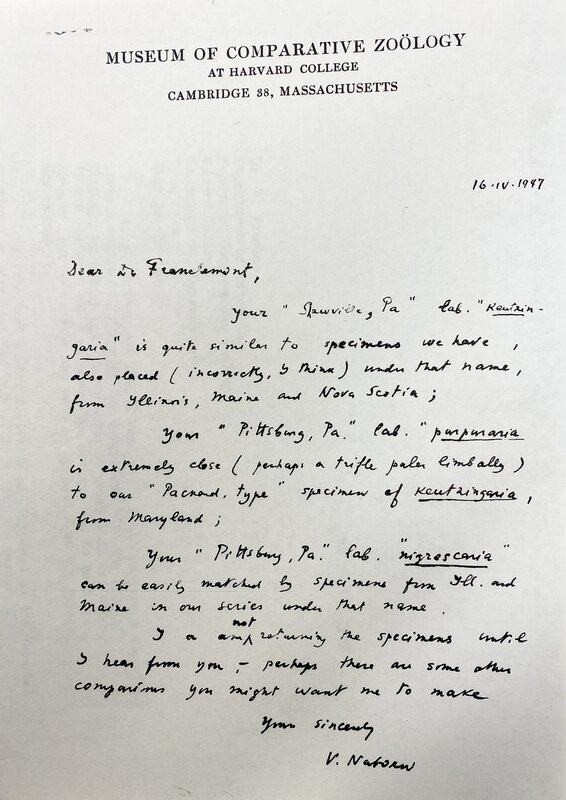 MUSEUM OF COMPARATIVE ZOÖLOGY
AT HARVARD COLLEGE
CAMBRIDGE 38, MASSACHUSETTS
16.IV.1947
Dear Dr Franclemont,
Your " , Pa" lab. "Keutzin-
garia" is quite similar to specimens we have,
also placed (incorrectly, I think) under that name,
from Illinois, Maine and Nova Scotia;
Your "Pittsburg, Pa." lab. "purpuraria
is extremely close (perhaps a trifle paler limbally)
to our "Packard, type" specimen of Keutzingaria,
from Maryland;
Your "Pittsburg, Pa." lab. "nigrescaria"
can be easily matched by specimens from Ill. and
Maine in our series under that name.
I a am not returning the specimens until
I hear from you, – perhaps there are some other
comparisons you might want me to make
Your sincerely
V. Nabokov